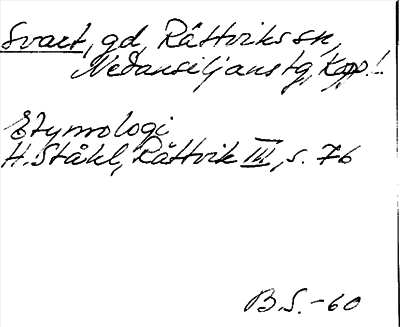 Svart, gd, Rättviks sn,
Nedansiljans tg, Kopp. l.
Etymologi
H. Ståhl, Rättvik III, s. 76
B.S.-60